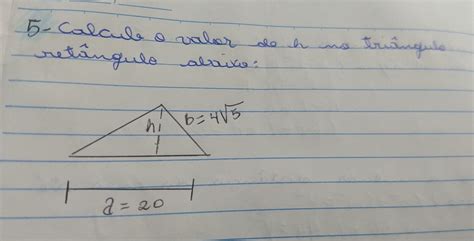 5- Calcule o valor do h no triângulo
retângulo abaixo:
h
b = 4√5
a = 20